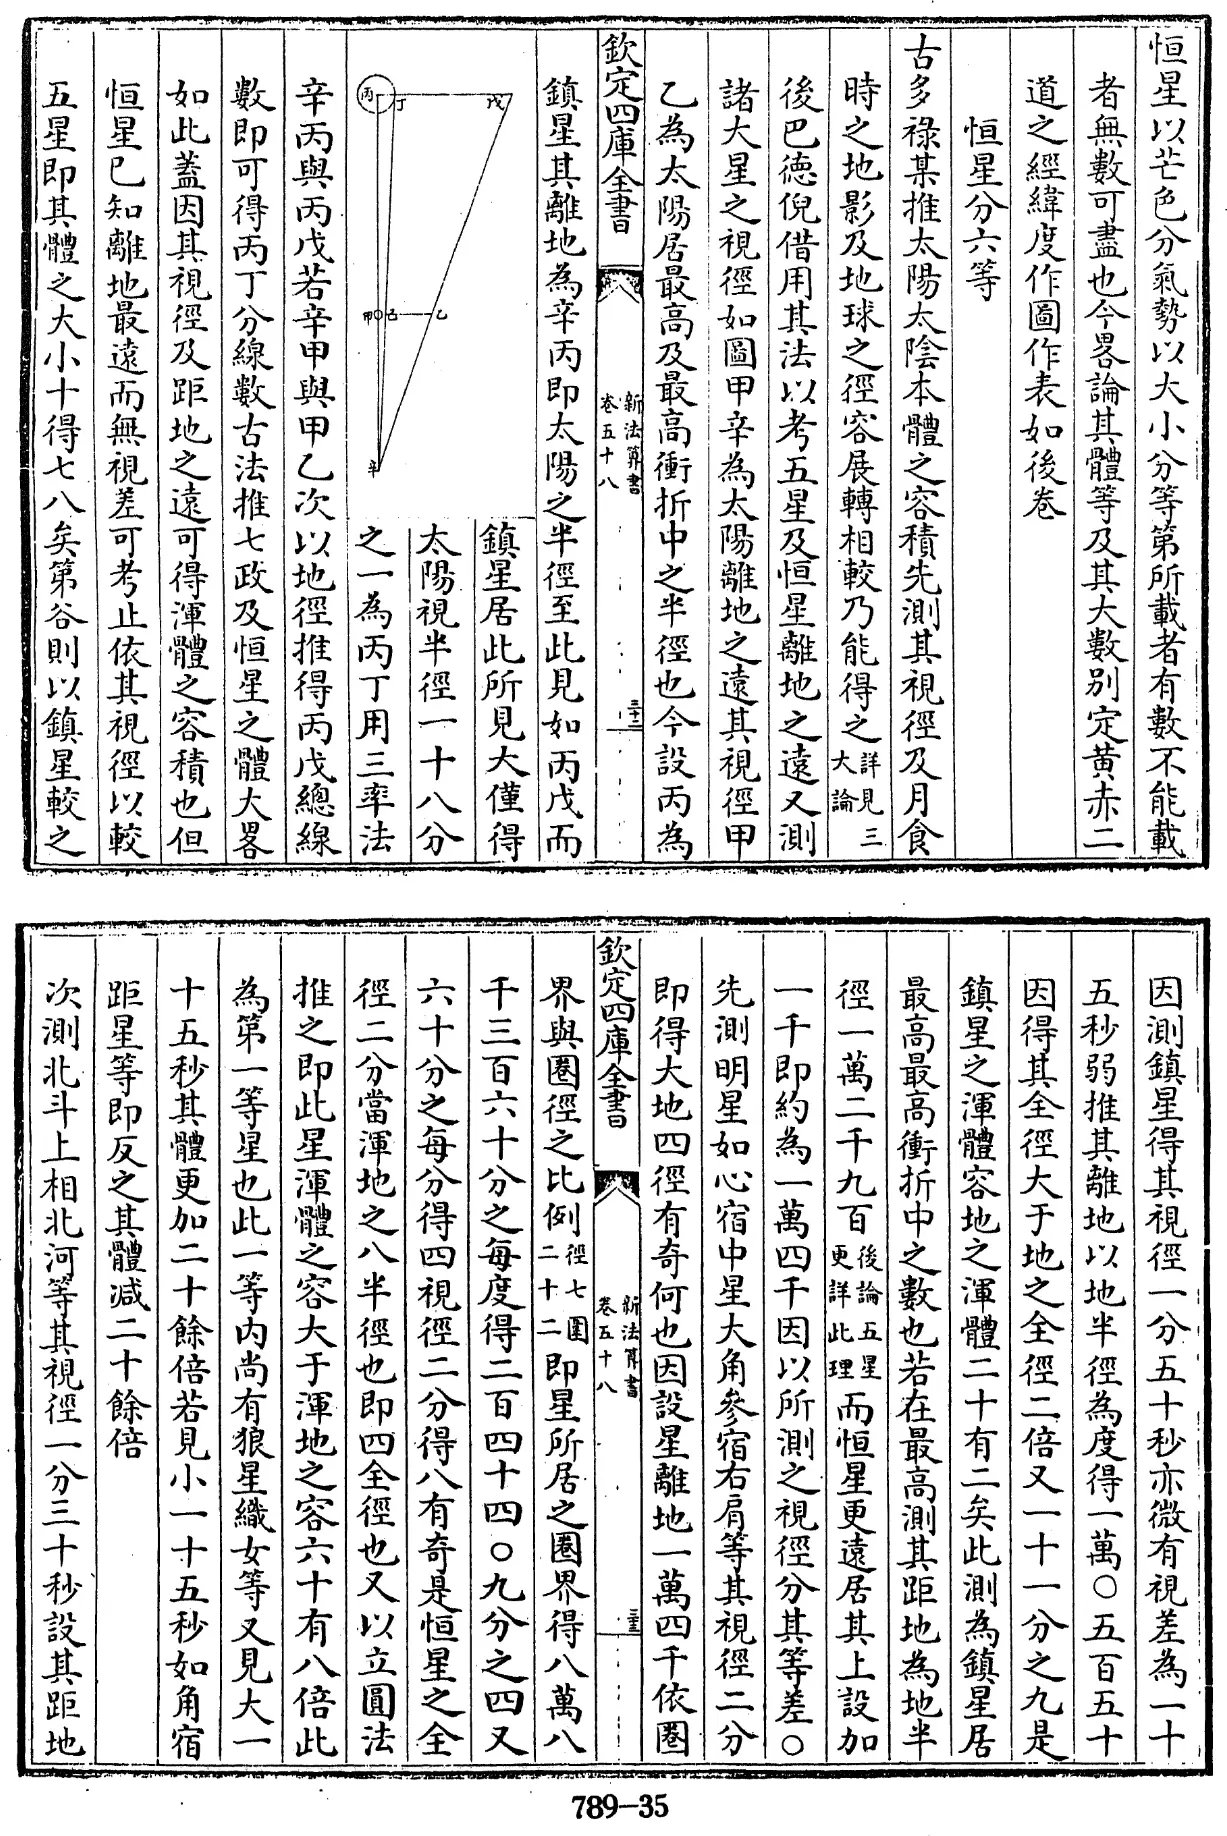 恒星以芒色分氣勢以大小分等第所載者有數不能載
者無數可盡也今畧論其體等及其大數别定黄赤二
道之經緯度作圖作表如後卷
恒星分六等
古多祿某推太陽太陰本體之容積先測其視徑及月食
時之地影及地球之徑容展轉相較乃能得之詳見三大論
後巴德倪借用其法以考五星及恒星離地之遠又測
諸大星之視徑如圖甲辛為太陽離地之遠其視徑甲
乙為太陽居最高及最高衝折中之半徑也今設丙為
欽定四庫全書
新法算書
卷五十八
三十二
鎮星其離地為辛丙即太陽之半徑至此見如丙戊而
鎮星居此所見大僅得
太陽視半徑一十八分
之一為丙丁用三率法
丙
丁
戊
甲
己
乙
辛
辛丙與丙戊若辛甲與甲乙次以地徑推得丙戊總線
數即可得丙丁分線數古法推七政及恒星之體大畧
如此蓋因其視徑及距地之遠可得渾體之容積也但
恒星已知離地最遠而無視差可考止依其視徑以較
五星即其體之大小十得七八矣第谷則以鎮星較之
因測鎮星得其視徑一分五十秒亦微有視差為一十
五秒弱推其離地以地半徑為度得一萬○五百五十
因得其全徑大于地之全徑二倍又一十一分之九是
鎮星之渾體容地之渾體二十有二矣此測為鎮星居
最高最高衝折中之數也若在最高測其距地為地半
徑一萬二千九百後論五星更詳此理而恒星更遠居其上設加
一千即約為一萬四千因以所測之視徑分其等差○
先測明星如心宿中星大角參宿右肩等其視徑二分
即得大地四徑有奇何也因設星離地一萬四千依圈
欽定四庫全書
新法算書
卷五十八
三十三
界與圈徑之比例徑七圍二十二即星所居之圈界得八萬八
千三百六十分之每度得二百四十四○九分之四又
六十分之每分得四視徑二分得八有奇是恒星之全
徑二分當渾地之八半徑也即四全徑也又以立圓法
推之即此星渾體之容大于渾地之容六十有八倍此
為第一等星也此一等内尚有狼星織女等又見大一
十五秒其體更加二十餘倍若見小一十五秒如角宿
距星等即反之其體減二十餘倍
次測北斗上相北河等其視徑一分三十秒設其距地
789-35